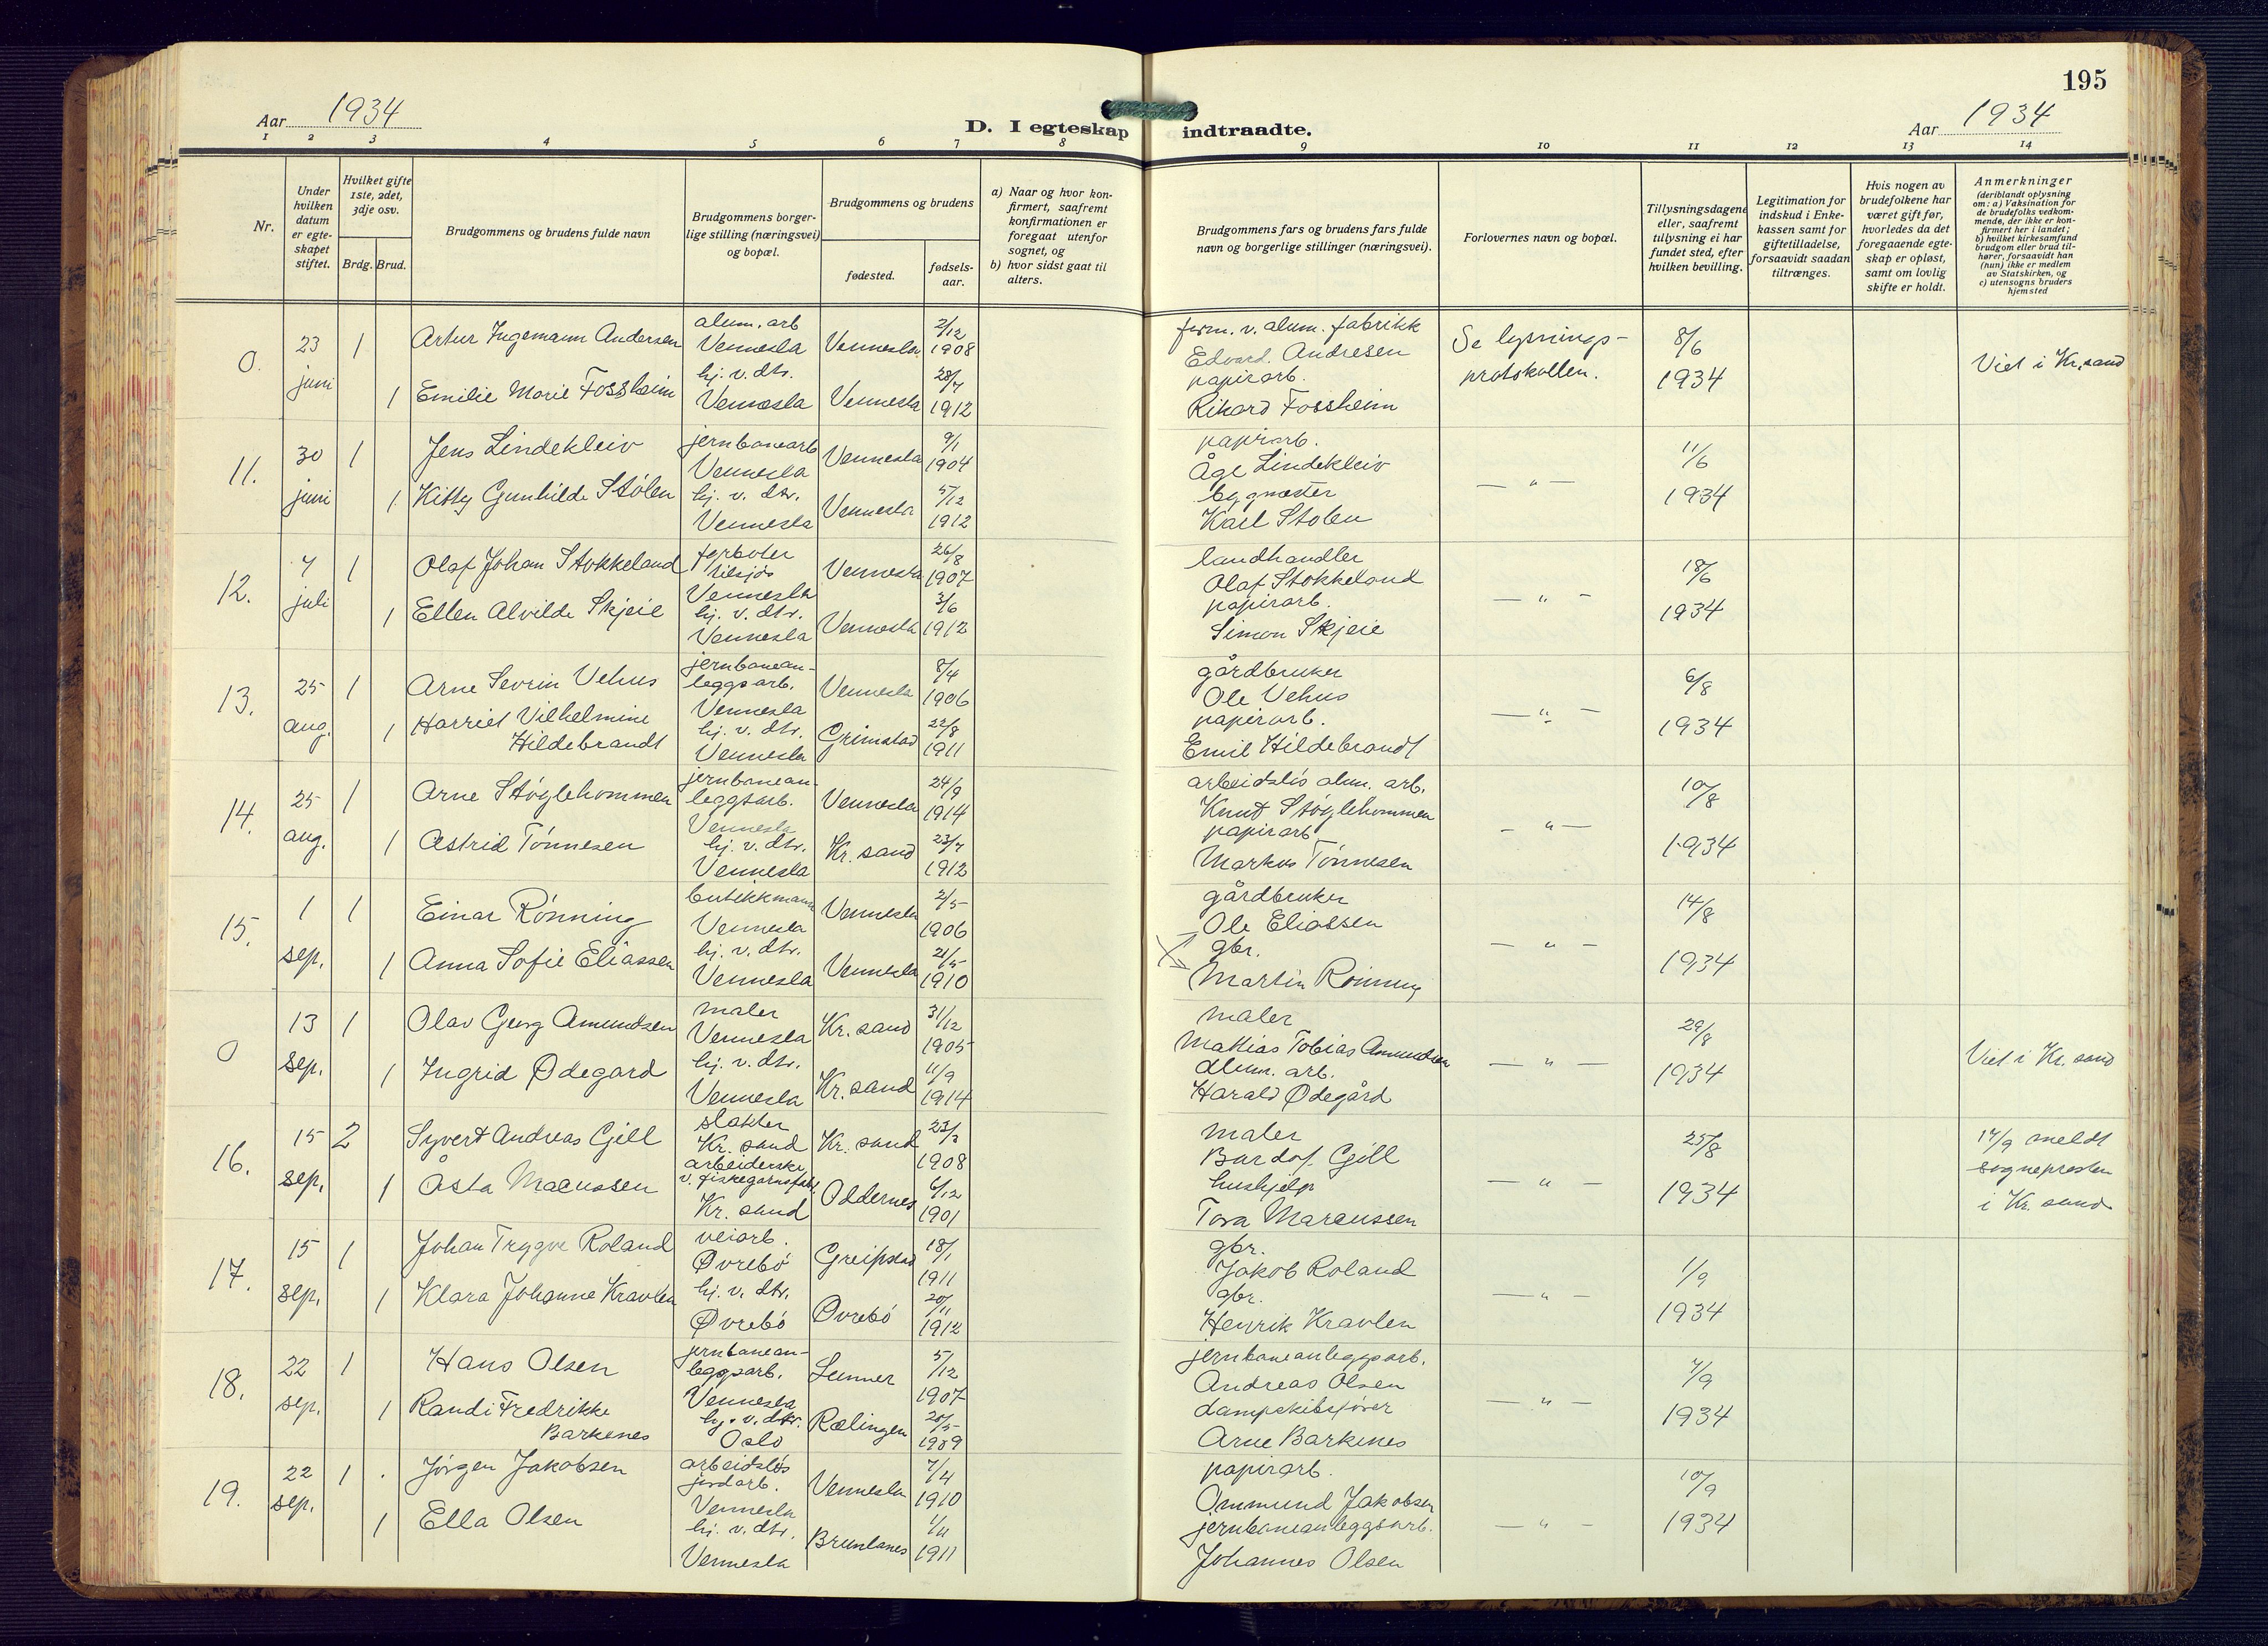 195
Aar 1934
D. I egteskap indtraadte.
Aar 1934
1 2 3 4 5 6 7 8 9 10 11 12 13 14
Nr.
Under hvilken datum er egteskapet stiftet.
Hvilket gifte 1ste, 2det, 3dje osv.
Brdg. Brud.
Brudgommens og brudens fulde navn
Brudgommens borgerlige stilling (næringsvei) og bopæl.
Brudgommens og brudens
fødested.
fødselsaar.
a) Naar og hvor konfirmert, saafremt konfirmationen er foregaat utenfor sognet, og
b) hvor sidst gaat til alters.
Brudgommens fars og brudens fars fulde navn og borgerlige stillinger (næringsvei).
Forlovernes navn og bopæl.
Tillysningsdagene eller, saafremt tillysning ei har fundet sted, efter hvilken bevilling.
Legitimation for indskud i Enkekassen samt for giftetilladelse, forsaavidt saadan tiltrænges.
Hvis nogen av brudefolkene har været gift før, hvorledes da det foregaaende egteskap er opløst, samt om lovlig skifte er holdt.
Anmerkninger (deriblandt oplysning om: a) Vaksination for de brudefolks vedkommende, der ikke er konfirmert her i landet; b) hvilket kirkesamfund brudgom eller brud tilhører, forsaavidt han (hun) ikke er medlem av Statskirken, og c) utensogns bruders hjemsted
0. 23 juni 1 Artur Ingemann Andersen alum. arb Vennesla Vennesla 2/12 1908
1 Emilie Marie Fossheim hj. v. dtr. Vennesla Vennesla 28/7 1912
form. v. alum. fabrikk
Edvard. Andresen
papirarb.
Rikard Fossheim
Se lysnings-
protokollen.
8/6 1934
Viet i Kr.sand
11. 30 juni 1 Jens Lindekleiv jernbanearb Vennesla Vennesla 9/1 1904
1. Kitty Gunhilde Stølen hj. v. dtr. Vennesla Vennesla 5/12 1912
papirarb.
Åge Lindekleiv
bygmester
Karl Stolen
— " —
11/6 1934
12. 7 juli 1 Olaf Johan Stokkeland Vennesla Vennesla 26/8 1907
1 Ellen Alvilde Skjeie hj. v. dtr. Vennesla Vennesla 3/6 1912
landhandler
Olaf Stokkeland
papirarb.
Simon Skjeie
— " —
18/6 1934
13. 25 aug. 1 Arne Sevrin Vehus jernbanean-
leggsarb. Vennesla Vennesla 8/4 1906
1 Harriet Vilhelmine
Hildebrandt hj. v. dtr. Vennesla Grimstad 22/8 1911
gårdbruker
Ole Vehus
papirarb.
Emil Hildebrandt
— " —
6/8 1934
14. 25 aug. 1 Arne Støylehommen jernbanean-
leggsarb. Vennesla Vennesla 24/9 1914
1 Astrid Tønnesen hj. v. dtr. Vennesla Kr. sand 23/7 1912
arbeidsløs alum. arb.
Knut Støylehommen
papirarb
Markus Tønnesen
— " —
10/8 1934
15. 1 sep. 1 Einar Rønning butikkmann Vennesla Vennesla 2/5 1906
1 Anna Sofie Eliassen hj. v. dtr. Vennesla Vennesla 21/5 1910
gårdbruker
Ole Eliassen
gbr.
Martin Rønning
— " —
14/8 1934
0 13 sep. 1 Olav Georg Amundsen maler Vennesla Kr. sand 31/12 1905
1 Ingrid Ødegard hj. v. dtr. Vennesla Kr. sand 11/9 1914
maler
Mathias Tobias Amundsen
alum. arb.
Harald Ødegård
— " —
29/8 1934
Viet i Kr. sand
16. 15 sep. 2 Syvert Andreas Gjell slakter Kr. sand Kr. sand 1908
1 Åsta Marcussen arbeiderske
v. fiskegarnsfabr. Kr. sand Oddernes 6/12 1901
maler
Bardof. Gjell
hushjelp
Tora Marcussen
— " —
25/8 1934
17/9 meldt
sognepresten
i Kr. sand
17. 15 sep. 1 Johan Trygve Roland veiarb. Øvrebø Greipstad 18/1 1911
1 Klara Johanne Kravlen hj. v. dtr. Øvrebø Øvrebø 20/11 1912
gbr.
Jakob Roland
gbr.
Henrik Kravlen
— " —
1/9 1934
18. 22 sep. 1 Hans Olsen jernbanean-
leggsarb. Vennesla Lunner 5/12 1907
1 Randi Fredrikke
Barkenes hj. v. dtr. Oslo Rælingen 20/5 1909
jernbaneanleggsarb.
Andreas Olsen
dampskibsfører
Arne Barkenes
— " —
7/9 1934
19. 22 sep. 1 Jørgen Jakobsen arbeidsløs
jordarb. Vennesla Vennesla 7/4 1910
1 Ella Olsen hj. v. dtr. Vennesla Brunlanes 1/11 1911
papirarb.
Ommund Jakobsen
jernbaneanleggsarb.
Johannes Olsen
— " —
10/9 1934